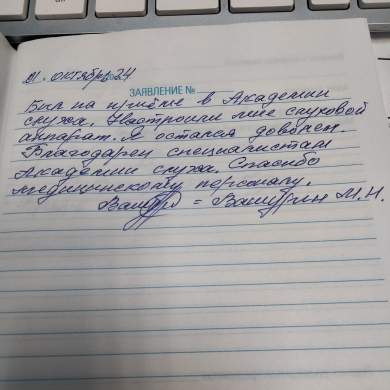 01. октябрь 24
ЗАЯВЛЕНИЕ №
Был на приёме в Академии
слуха. Настроили мне слуховой
аппарат. Я остался доволен.
Благодарен специалистам
Академии слуха. Спасибо
медицинскому персоналу.
= Вашурин М.Н.